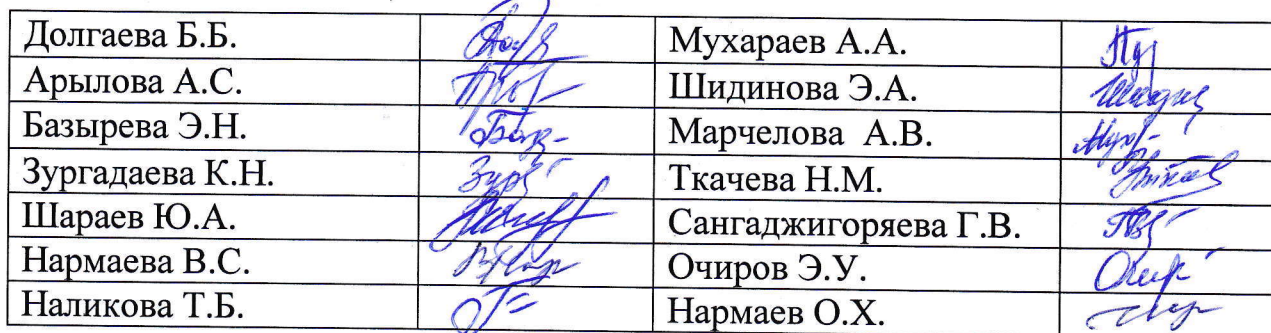 Долгаева Б.Б. Мухараев А.А.
Арылова А.С. Шидинова Э.А.
Базырева Э.Н. Марчелова А.В.
Зургадаева К.Н. Ткачева Н.М.
Шараев Ю.А. Сангаджигоряева Г.В.
Нармаева В.С. Очиров Э.У.
Наликова Т.Б. Нармаев О.Х.